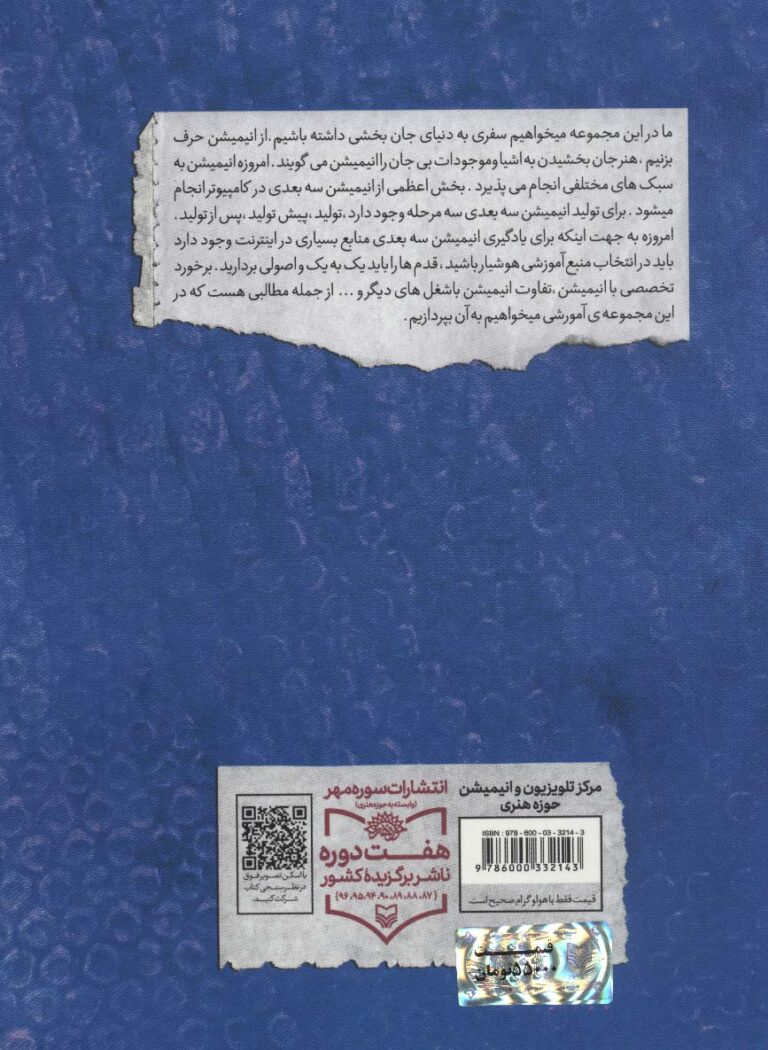 ما در این مجموعه میخواهیم سفری به دنیای جان بخشی داشته باشیم .از انیمیشن حرف
بزنیم ، هنر جان بخشیدن به اشیا وموجودات بی جان را انیمیشن می گویند . امروزه انیمیشن به
سبک های مختلفی انجام می پذیرد . بخش اعظمی از انیمیشن سه بعدی در کامپیوتر انجام
میشود . برای تولید انیمیشن سه بعدی سه مرحله وجود دارد ،تولید ، پیش تولید ،پس از تولید .
امروزه به جهت اینکه برای یادگیری انیمیشن سه بعدی منابع بسیاری در اینترنت وجود دارد
باید در انتخاب منبع آموزشی هوشیار باشید ، قدم ها را باید یک به یک و اصولی بردارید . برخورد
تخصصی با انیمیشن ،تفاوت انیمیشن باشغل های دیگر و ... از جمله مطالبی هست که در
این مجموعه ی آمورشی میخواهیم به آن بپردازیم .
مرکز تلویزیون و انیمیشن
حوزه هنری
ISBN : 978 - 600 - 03 - 3214 - 3
9 786000 332143
قیمت فقط با هولوگرام صحیح است.
انتشارات سوره مهر
(وابسته به حوزه هنری)
هفت دوره
ناشر برگزیدهٔ کشور
{۸۷، ۸۸، ۸۹، ۹۰، ۹۴، ۹۵، ۹۶}
با اسکن تصویر فوق
در نظرسنجی کتاب
شرکت کنید.
قیمت
۵۵۰۰۰ تومان